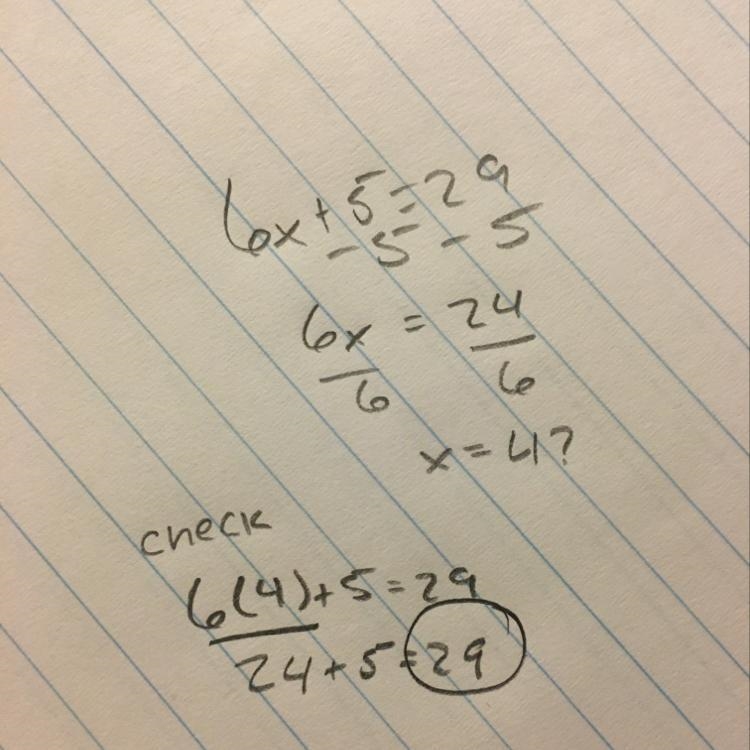 6x + 5 = 29
- 5 - 5
6x = 24
6 6
x = 4?
check
6(4) + 5 = 29
24 + 5 = 29